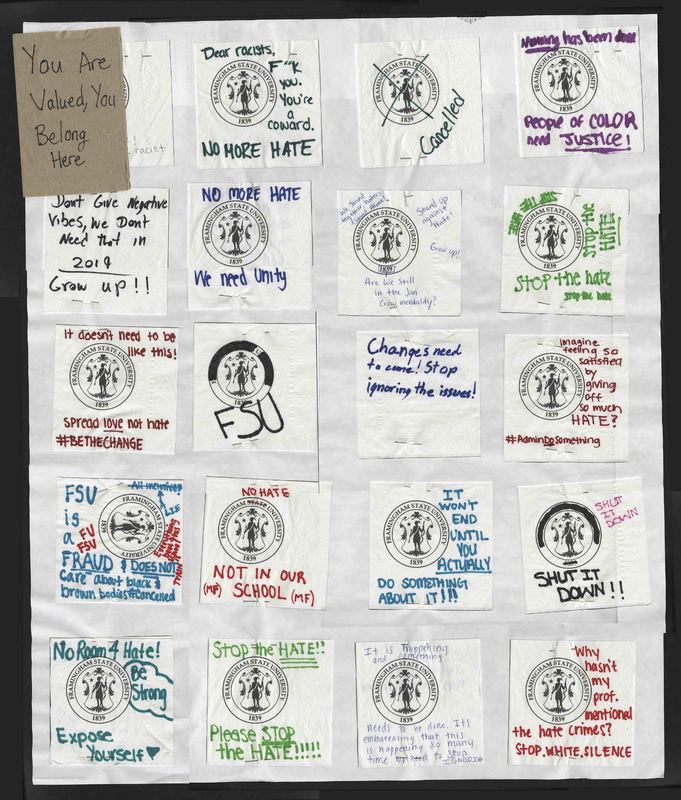 You Are
Valued, You
Belong
Here
racist
Dear racists,
F**k
you.
You're
a
coward.
NO MORE HATE
FRAMINGHAM STATE UNIVERSITY
1839
Cancelled
FRAMINGHAM STATE UNIVERSITY
1839
Nothing has been done
People of COLOR
need JUSTICE!
FRAMINGHAM STATE UNIVERSITY
1839
Dont Give Negative
Vibes, We Dont
Need that in
2019
Grow up!!
NO MORE HATE
We need Unity
FRAMINGHAM STATE UNIVERSITY
1839
We Stand
together, haters
Stand up
against
Hate!
Grow up!
Are we still
in the Jim
Crow mentality?
FRAMINGHAM STATE UNIVERSITY
1839
STOP THE HATE
STOP the
HATE
STOP the hate
stop the hate
FRAMINGHAM STATE UNIVERSITY
1839
It doesn't need to be
like this!
Spread love not hate
#BETHECHANGE
FRAMINGHAM STATE UNIVERSITY
1839
FSU
1839
Changes need
to come! Stop
ignoring the issues!
imagine
feeling so
satisfied
by
giving
off
so much
HATE?
#AdminDoSomething
FRAMINGHAM STATE UNIVERSITY
1839
FSU
is
a
FU
FSU
FRAUD & DOES NOT
care about black &
brown bodies #concerned
All inclusive?
LIE
FRAMINGHAM STATE UNIVERSITY
1839
NO HATE
NOT IN OUR
(MF) SCHOOL (MF)
FRAMINGHAM STATE UNIVERSITY
1839
IT
WON'T
END
UNTIL
YOU
ACTUALLY
DO SOMETHING
ABOUT IT!!!
FRAMINGHAM STATE UNIVERSITY
1839
SHUT
IT
DOWN
SHUT IT
DOWN!!
1839
No Room 4 Hate!
Be
Strong
Expose
Yourself
FRAMINGHAM STATE UNIVERSITY
1839
Stop the HATE!!
Please STOP
the HATE!!!!!
FRAMINGHAM STATE UNIVERSITY
1839
It is happening
and something
needs to be done. Its
embarrasing that this
is happening so many
time. We need to stop
IGNORING
FRAMINGHAM STATE UNIVERSITY
1839
Why
hasn't
my
prof.
mentioned
the hate crimes?
STOP.WHITE.SILENCE
FRAMINGHAM STATE UNIVERSITY
1839